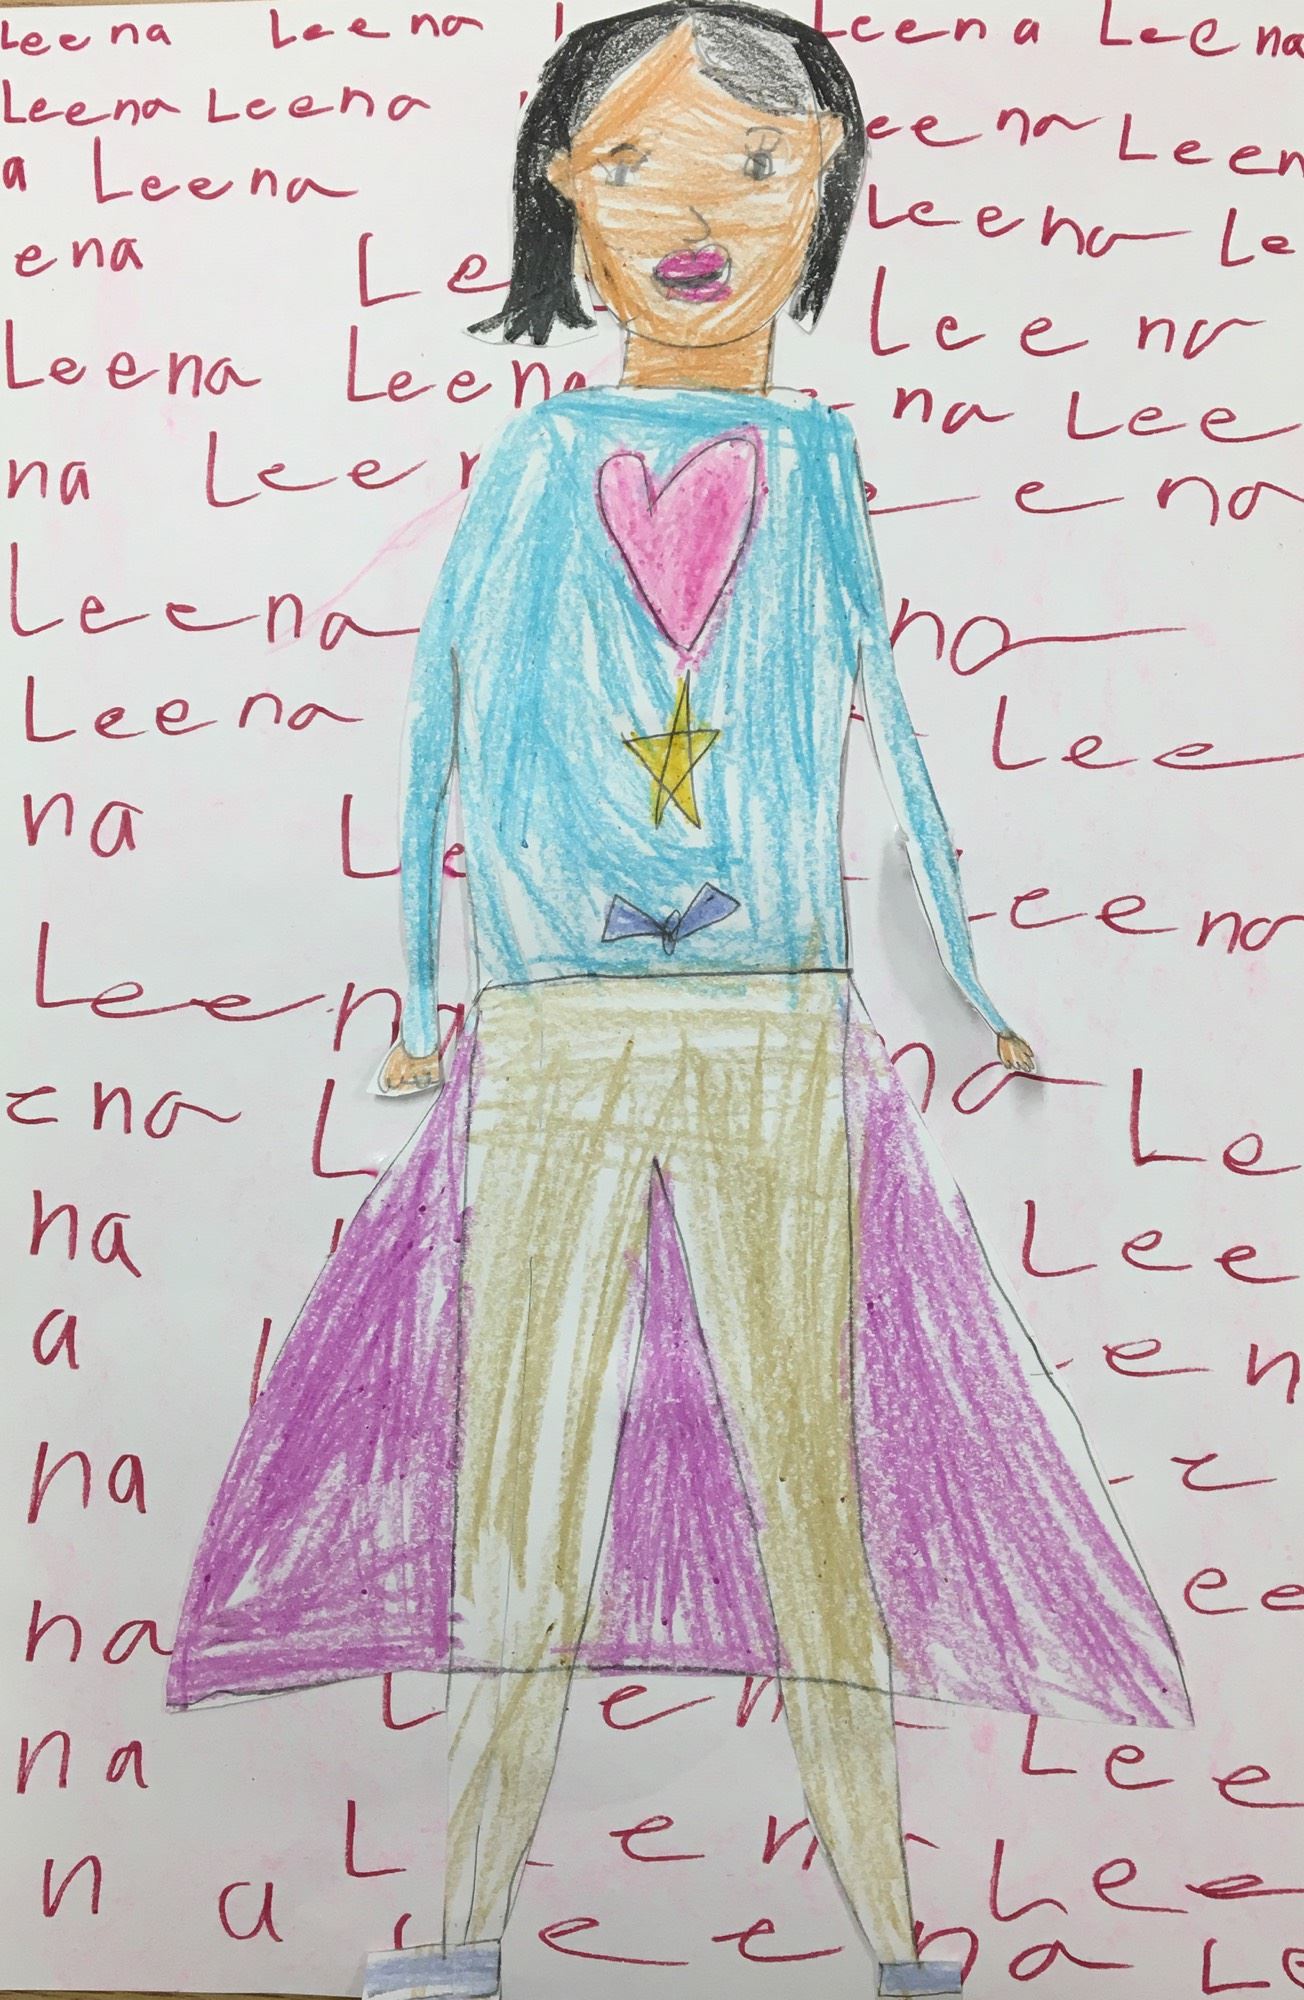 Leena Leena L Leena Leena
Leena Leena eena Leen
a Leena Leena Le
ena Le Leena
Leena Leena na Lee
na Leen e ena
Leena na
Leena Lee
na Le eena
Leena na Le
ena L Lee
na een
a e
na ee
na L en Lee
na L en Lee
n a Leena Le